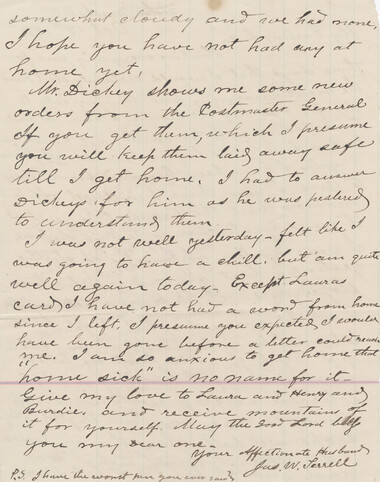 somewhat cloudy and we had none,
I hope you have not had any at
home yet.
Mr. Dickey shows me some new
orders from the Postmaster General
If you get them, which I presume
you will keep them laid away safe
till I get home. I had to answer
Dickeys for him as he was
to understand them
I was not well yesterday - felt like I
was going to have a chill. but am quite
well again today - Except Lauras
card I have not had a word from home
since I left. I presume you expected I would
have been gone before a letter could reach
me. I am so anxious to get home that
"home sick" is no name for it -
Give my love to Laura and Henry and
Burdie, and receive mountains of
it for yourself. May the Good Lord bless
you my Dear one -
Your Affectionate Husband
Jas. W. Terrell
P.S. I have the worst pen you ever saw